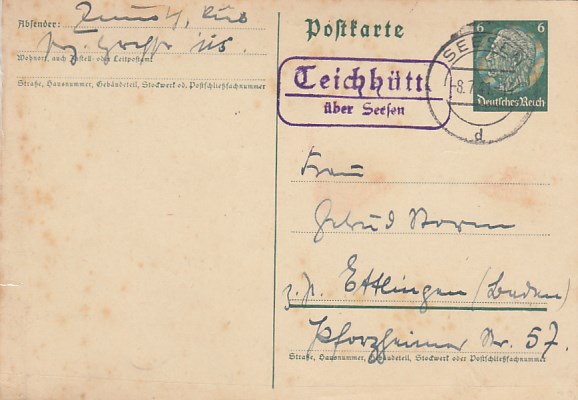 Absender:
Wohnort, auch Zustell- oder Leitpostamt
Straße, Hausnummer, Gebäudeteil, Stockwerk od. Postschließfachnummer
Postkarte
6 6
Deutsches Reich
SEESEN
-8.7.
d
Teichhütte
über Seesen
Frau
Storm
z. Zt. Ettlingen (Baden)
Pforzheimer Str. 57.
Straße, Hausnummer, Gebäudeteil, Stockwerk oder Postschließfachnummer